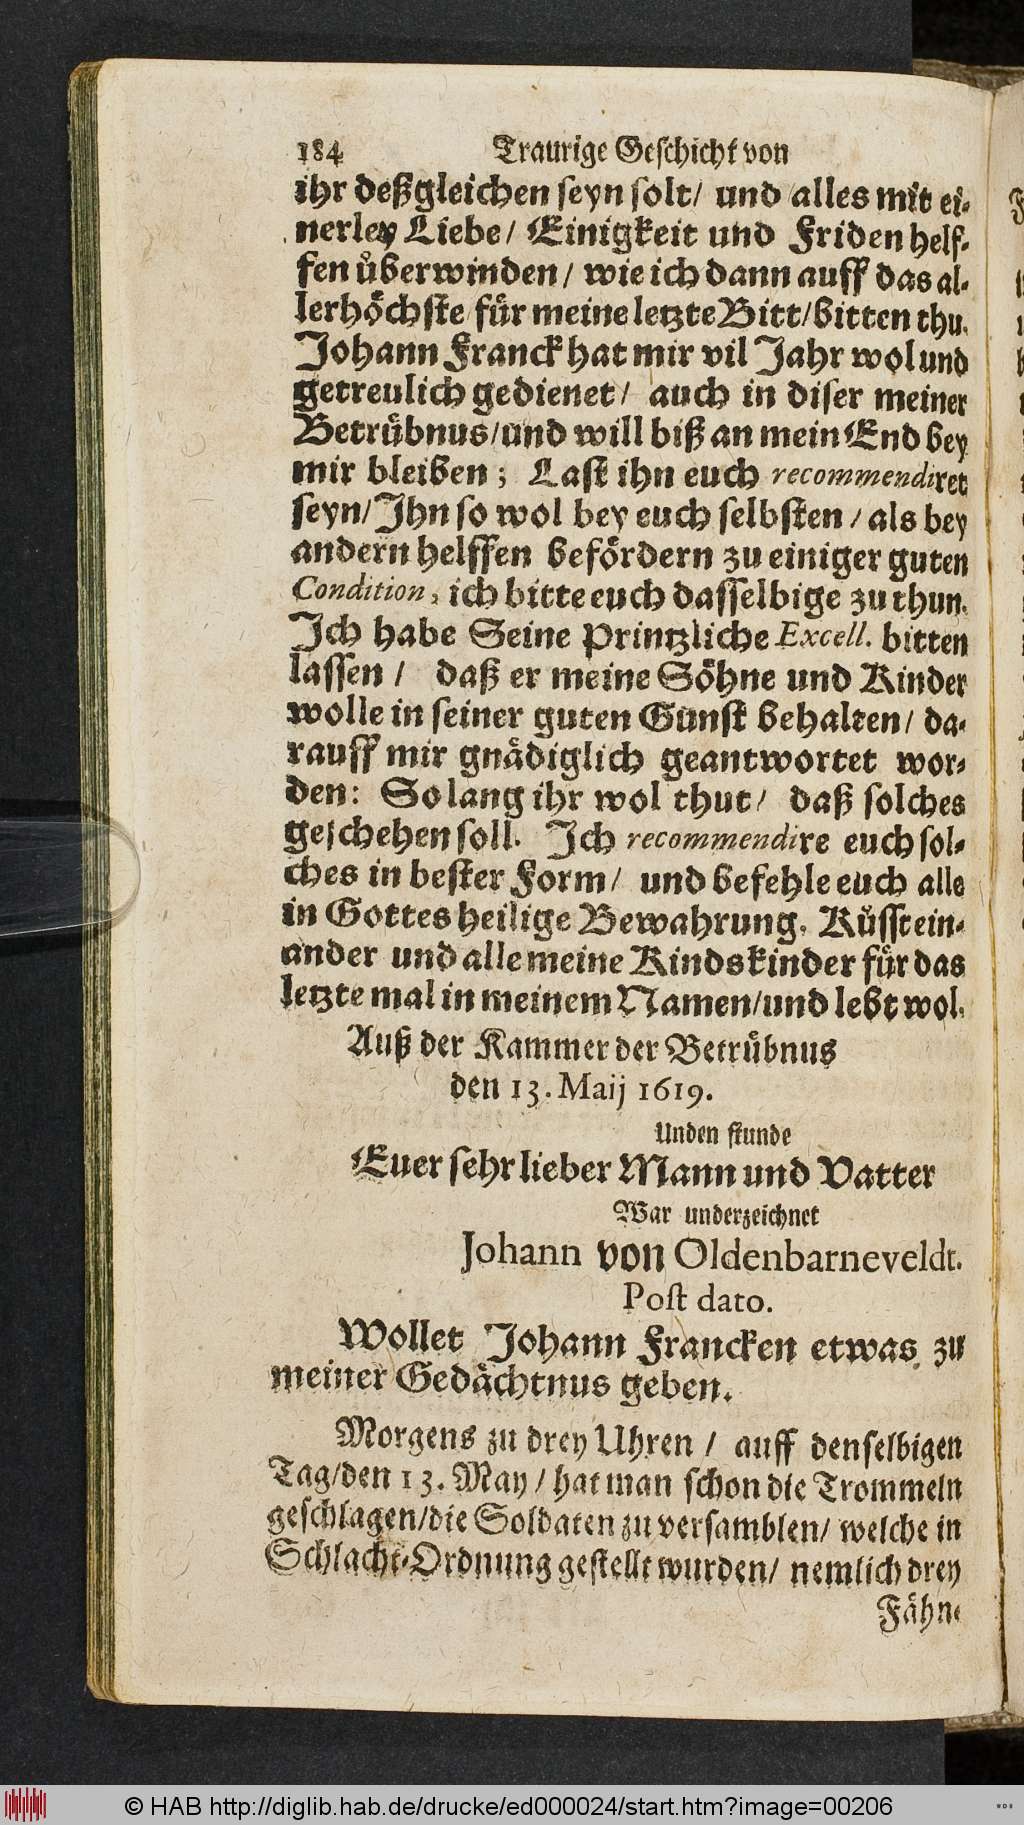 184 Traurige Geschicht von
ihr deßgleichen seyn solt/ und alles mit ei-
nerley Liebe/ Einigkeit und Friden helf-
fen uͤberwinden/ wie ich dann auff das al-
lerhoͤchste fuͤr meine letzte Bitt/bitten thu.
Johann Franck hat mir vil Jahr wol und
getreulich gedienet/ auch in diser meiner
Betruͤbnus/und will biß an mein End bey
mir bleiben; Last ihn euch recommendiret
seyn/ Ihn so wol bey euch selbsten/ als bey
andern helffen befoͤrdern zu einiger guten
Condition, ich bitte euch dasselbige zu thun.
Ich habe Seine Printzliche Excell. bitten
lassen/ daß er meine Soͤhne und Kinder
wolle in seiner guten Gunst behalten/ da-
rauff mir gnaͤdiglich geantwortet wor-
den: So lang ihr wol thut/ daß solches
geschehen soll. Ich recommendire euch sol-
ches in bester Form/ und befehle euch alle
in Gottes heilige Bewahrung. Kuͤsst ein-
ander und alle meine Kindskinder fuͤr das
letzte mal in meinem Namen/und lebt wol.
Auß der Kammer der Betruͤbnus
den 13. Maij 1619.
Unden stunde
Euer sehr lieber Mann und Vatter
War underzeichnet
Johann von Oldenbarneveldt.
Post dato.
Wollet Johann Francken etwas zu
meiner Gedaͤchtnus geben.
Morgens zu drey Uhren/ auff denselbigen
Tag/den 13. May/ hat man schon die Trommeln
geschlagen/die Soldaten zu versamblen/ welche in
Schlacht-Ordnung gestellt wurden/ nemlich drey
Faͤhn-
© HAB http://diglib.hab.de/drucke/ed000024/start.htm?image=00206